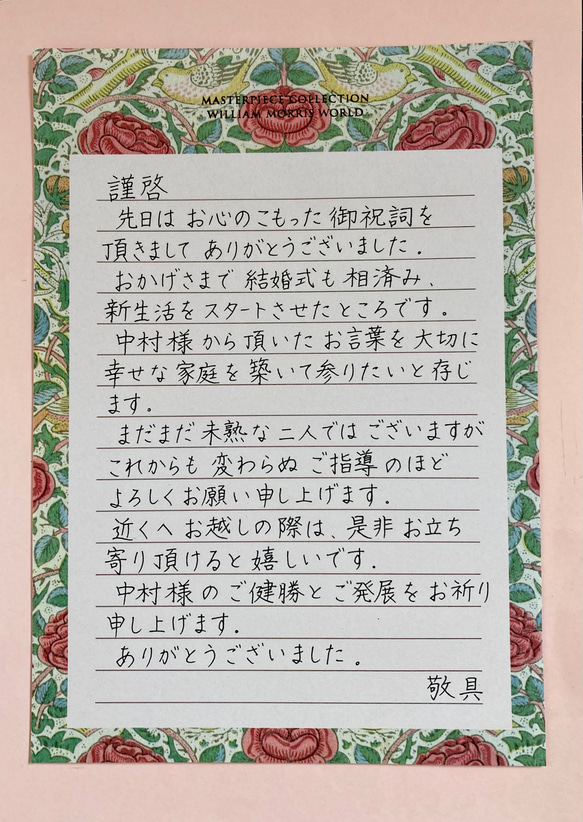 MASTERPIECE COLLECTION
WILLIAM MORRIS WORLD
謹啓
先日は お心のこもった 御祝詞を
頂きまして ありがとうございました.
おかげさまで 結婚式も 相済み、
新生活を スタートさせたところです。
中村様 から頂いた お言葉を 大切に
幸せな家庭を 築いて参りたいと存じ
ます。
まだまだ 未熟な 二人では ございますが
これからも 変わらぬ ご指導 のほど
よろしくお願い申し上げます.
近くへ お越しの際は、是非 お立ち
寄り頂けると 嬉しいです.
中村様 の ご健勝と ご発展を お祈り
申し上げます.
ありがとうございました。
敬具